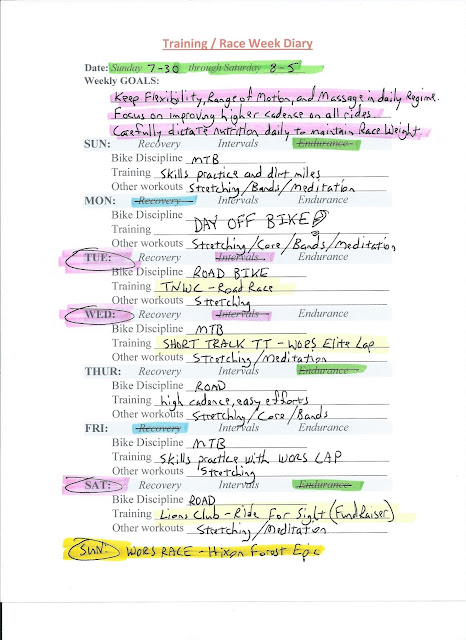 Training / Race Week Diary
Date: Sunday 7-30 through Saturday 8-5
Weekly GOALS:
Keep Flexibility, Range of Motion, and Massage in daily Regime.
Focus on improving higher cadence on all rides.
Carefully dictate nutrition daily to maintain Race Weight.
SUN: Recovery Intervals Endurance
Bike Discipline MTB
Training Skills practice and dirt miles
Other workouts Stretching/Bands/Meditation
MON: Recovery Intervals Endurance
Bike Discipline
Training DAY OFF BIKE
Other workouts Stretching/Core/Bands/Meditation
TUE: Recovery Intervals Endurance
Bike Discipline ROAD BIKE
Training TNWC - Road Race
Other workouts Stretching
WED: Recovery Intervals Endurance
Bike Discipline MTB
Training SHORT TRACK TT - WORS Elite Lap
Other workouts Stretching/Meditation
THUR: Recovery Intervals Endurance
Bike Discipline ROAD
Training high cadence, easy efforts
Other workouts Stretching/Core/Bands
FRI: Recovery Intervals Endurance
Bike Discipline MTB
Training Skills practice with WORS LAP
Other workouts Stretching
SAT: Recovery Intervals Endurance
Bike Discipline ROAD
Training Lions Club - Ride For Sight (Fundraiser)
Other workouts Stretching/Meditation
SUN: WORS RACE - Hixon Forest Epic